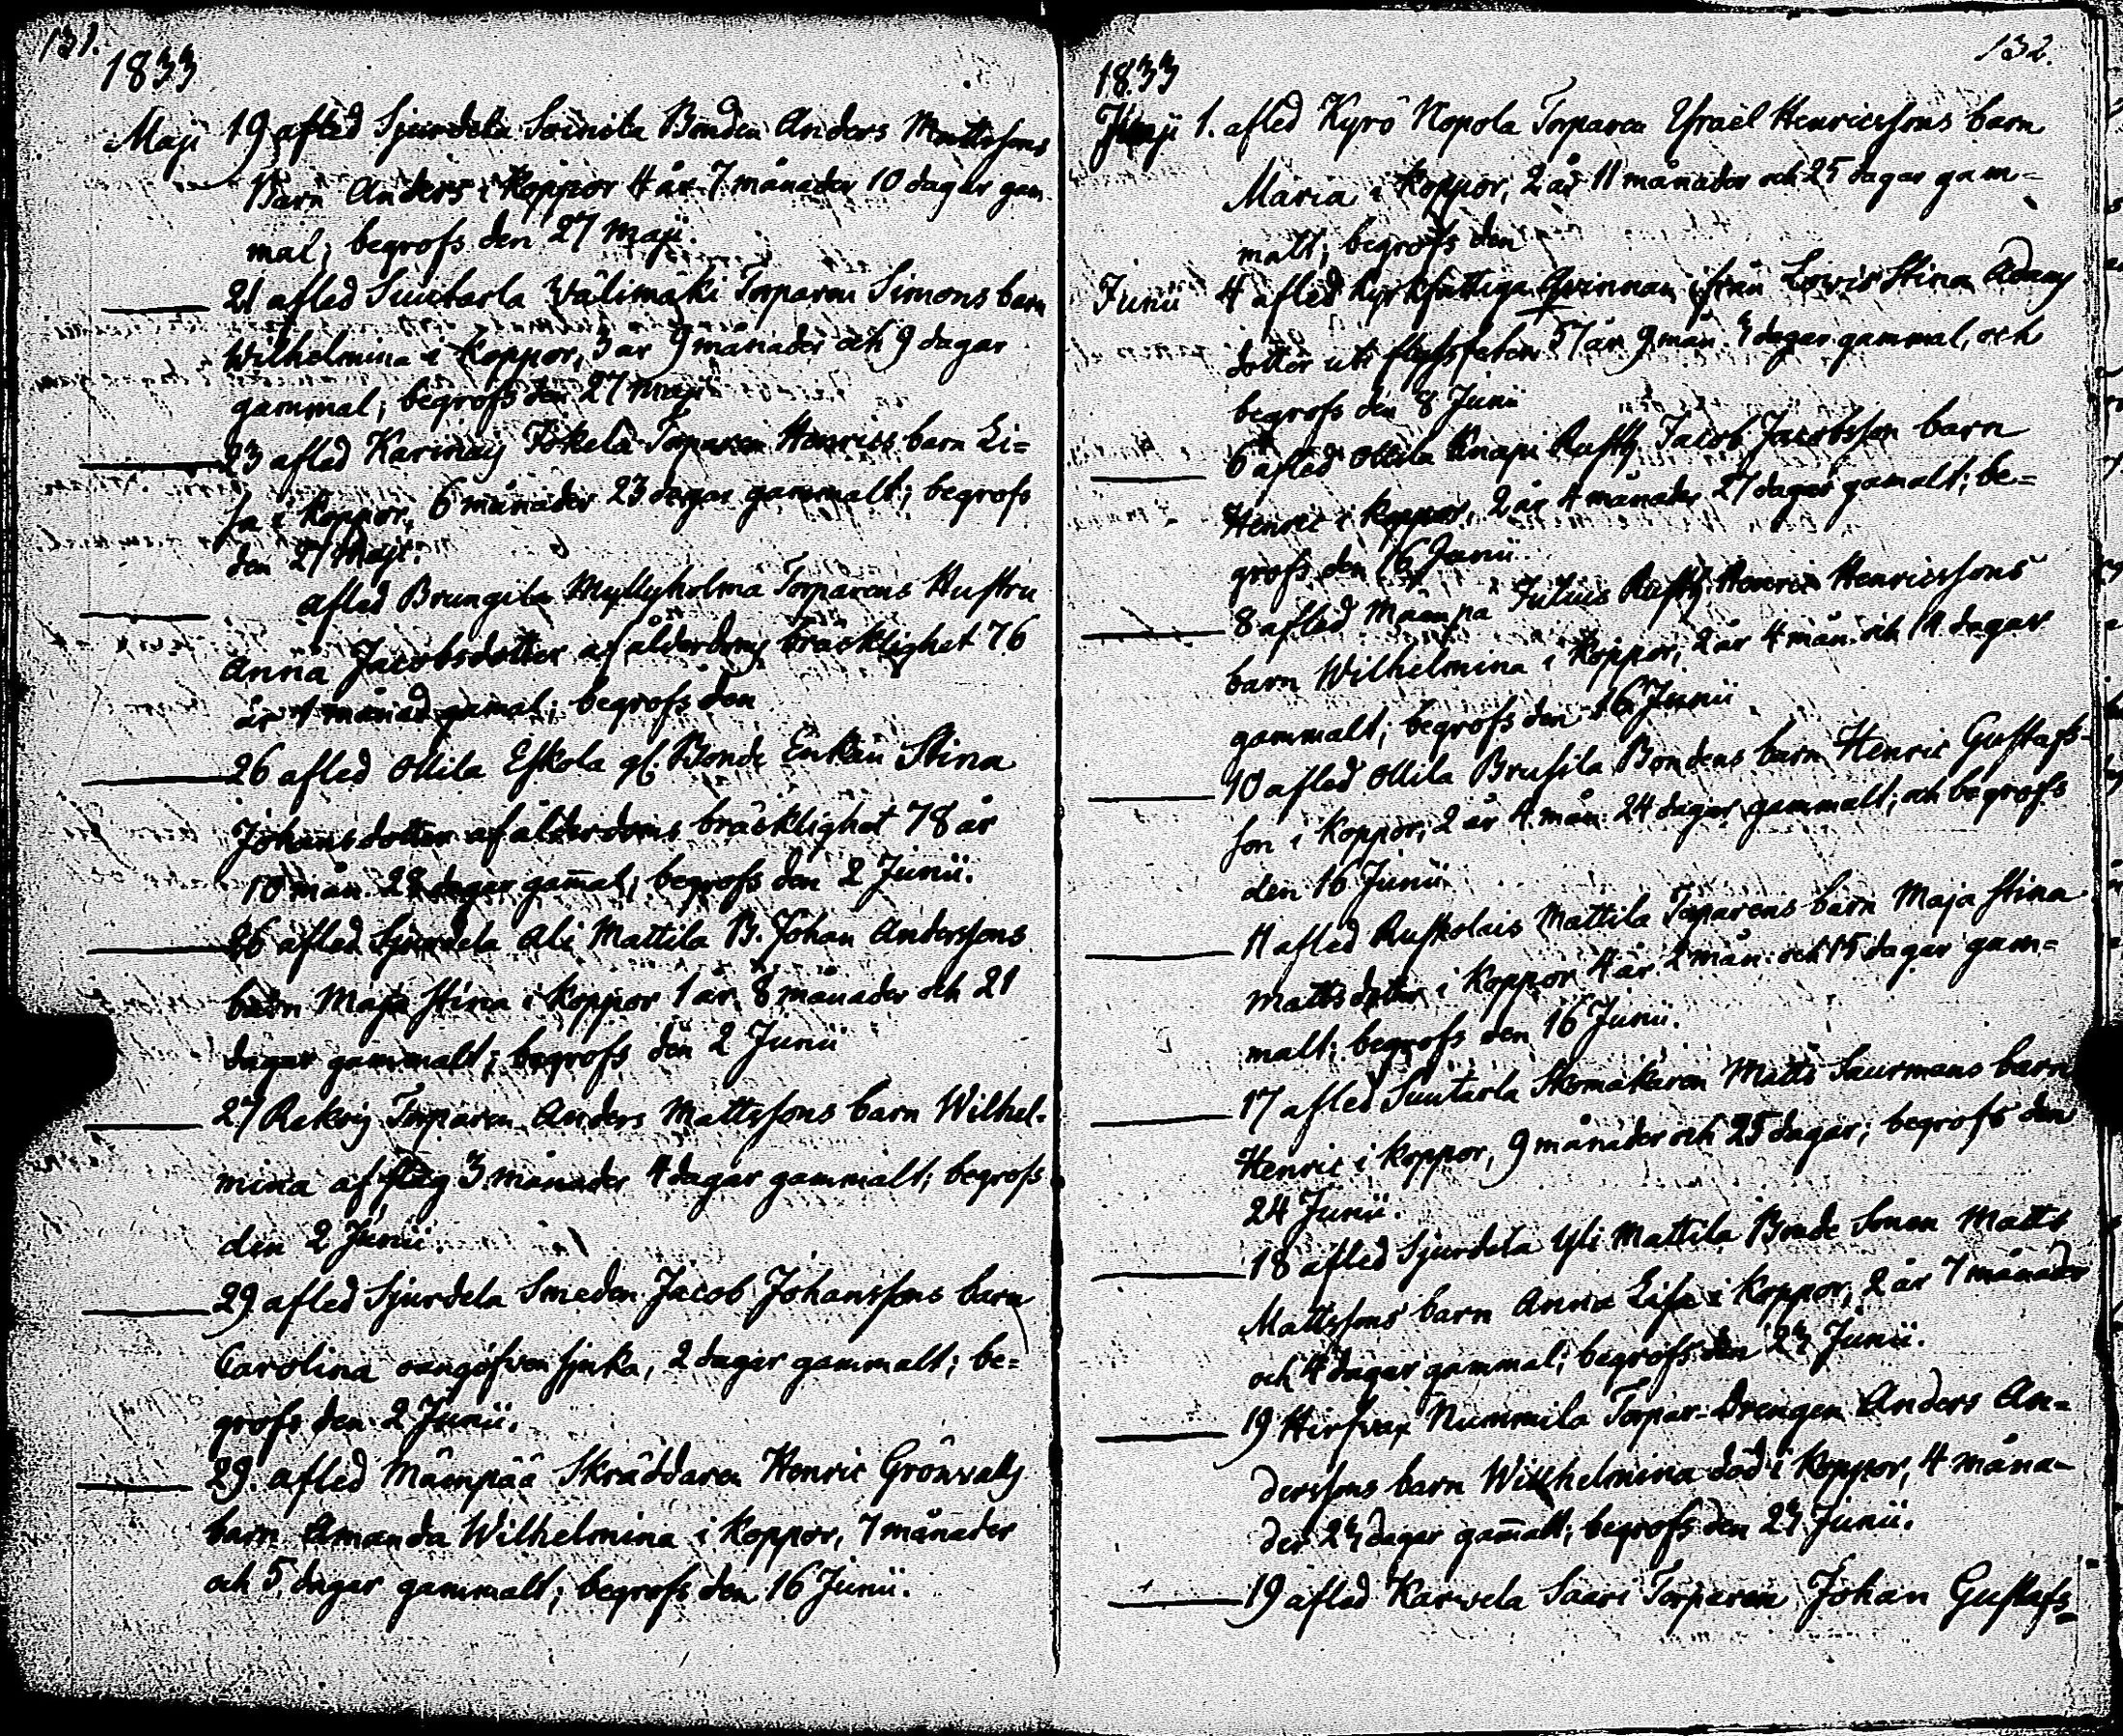 131.
1833
Maji 19 afled Sjurdela Soinila Bonden Anders Mattssons
Barn Anders i Koppor 4 år 7 månader 10 dagar gam
mal; begrofs den 27 Maji.
21 afled Suutarla Välimäki Torparen Simons barn
Wilhelmina i Koppor, 3 år 9 månader och 9 dagar
gammal; begrofs den 27 Maji
23 afled Karinais Torparen Henrics barn Li=
sa i Koppor, 6 månader 23 dagar gammalt; begrofs
den 27 Maji.
afled Brungila Myllyholma Torparens Hustru
Anna Jacobsdotter af ålderdoms bräcklighet 76
år 1 månad gamal; begrofs den
26 afled Ollila Eskola gl. Bonde Enkan Stina
Johansdotter af ålderdoms bräcklighet 78 år
10 mån. dagar gam̄al; begrofs den 2 Junii.
26 afled Sjurdela Ali Mattila B. Johan Anderssons
barn Maja Stina i Koppor 1 år 8 månader och 21
dagar gammalt; begrofs den 2 Junii
27 Torparen Anders Mattssons barn Wilhel-
mina af slag 3 månader 4 dagar gammalt; begrofs
den 2 Junii.
29 afled Sjurdela Smeden Jacob Johanssons barn
Carolina oangifven sjuka, 2 dagar gammalt; be=
grofs den 2 Junii.
29. afled Mämpää Skräddaren Henric Grönvalls
barn Amanda Wilhelmina i Koppor, 7 månader
och 5 dagar gammalt; begrofs den 16 Junii.
132.
1833
1. afled Kyrö Nopola Torparen Israel Henricssons barn
Maria i Koppor, 2 år 11 månader och 25 dagar gam=
malt; begrofs den
Junii 4 afled Kyrkfattiga Qvinnan ifrån Lovis Stina Adams
dotter uti 57 år 9 mån. 4 dagar gammal, och
begrofs den 8 Junii
6 afled Ollila Knapi Rusth. Jacob Jacobsson barn
Henric i Koppor, 2 år 4 månader 27 dagar gamalt; be=
grofs den 16 Junii
8 afled Mämpä Julius Rusth. Henric Henricssons
barn Wilhelmina i Koppor, 2 år 4 mån. och 14 dagar
gammalt; begrofs den 16 Junii
10 afled Ollila Brusila Bondens barn Henric Gustafs-
son i Koppor, 2 år 4 mån. 24 dagar gammalt; och begrofs
den 16 Junii
11 afled Ruskolais Mattila Torparens barn Maja Stina
Mattsdotter i Koppor 4 år 2 mån. och 15 dagar gam=
malt; begrofs den 16 Junii.
17 afled Suutarla Skomakaren Matts Saurmans barn
Henric i Koppor, 9 månader och 25 dagar; begrofs den
24 Junii.
18 afled Sjurdela Yli Mattila Bonde Sonen Matts
Mattssons barn Anna Lisa i Koppor, 2 år 7 månader
och 4 dagar gammal; begrofs den 24 Junii.
19 Hirsvax Nummila Torpar-Drengen Anders An=
derssons barn Wilhelmina död i Koppor, 4 måna-
der 24 dagar gam̄alt; begrofs den 24 Junii.
19 afled Karvela Saari Torparen Johan Gustafs=